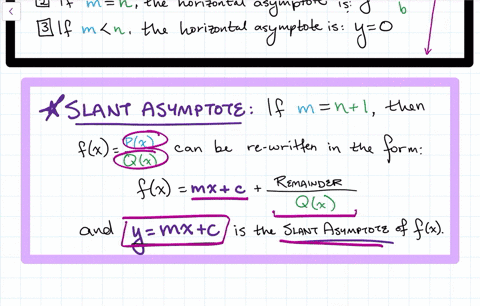 2 If m = n, the horizontal asymptote is:
b
3 If m < n, the horizontal asymptote is: y = 0
☆ SLANT ASYMPTOTE: If m = n+1, then
f(x) = P(x)/Q(x) can be re-written in the form:
f(x) = mx + c + REMAINDER/Q(x)
and y = mx + c is the SLANT ASYMPTOTE of f(x).